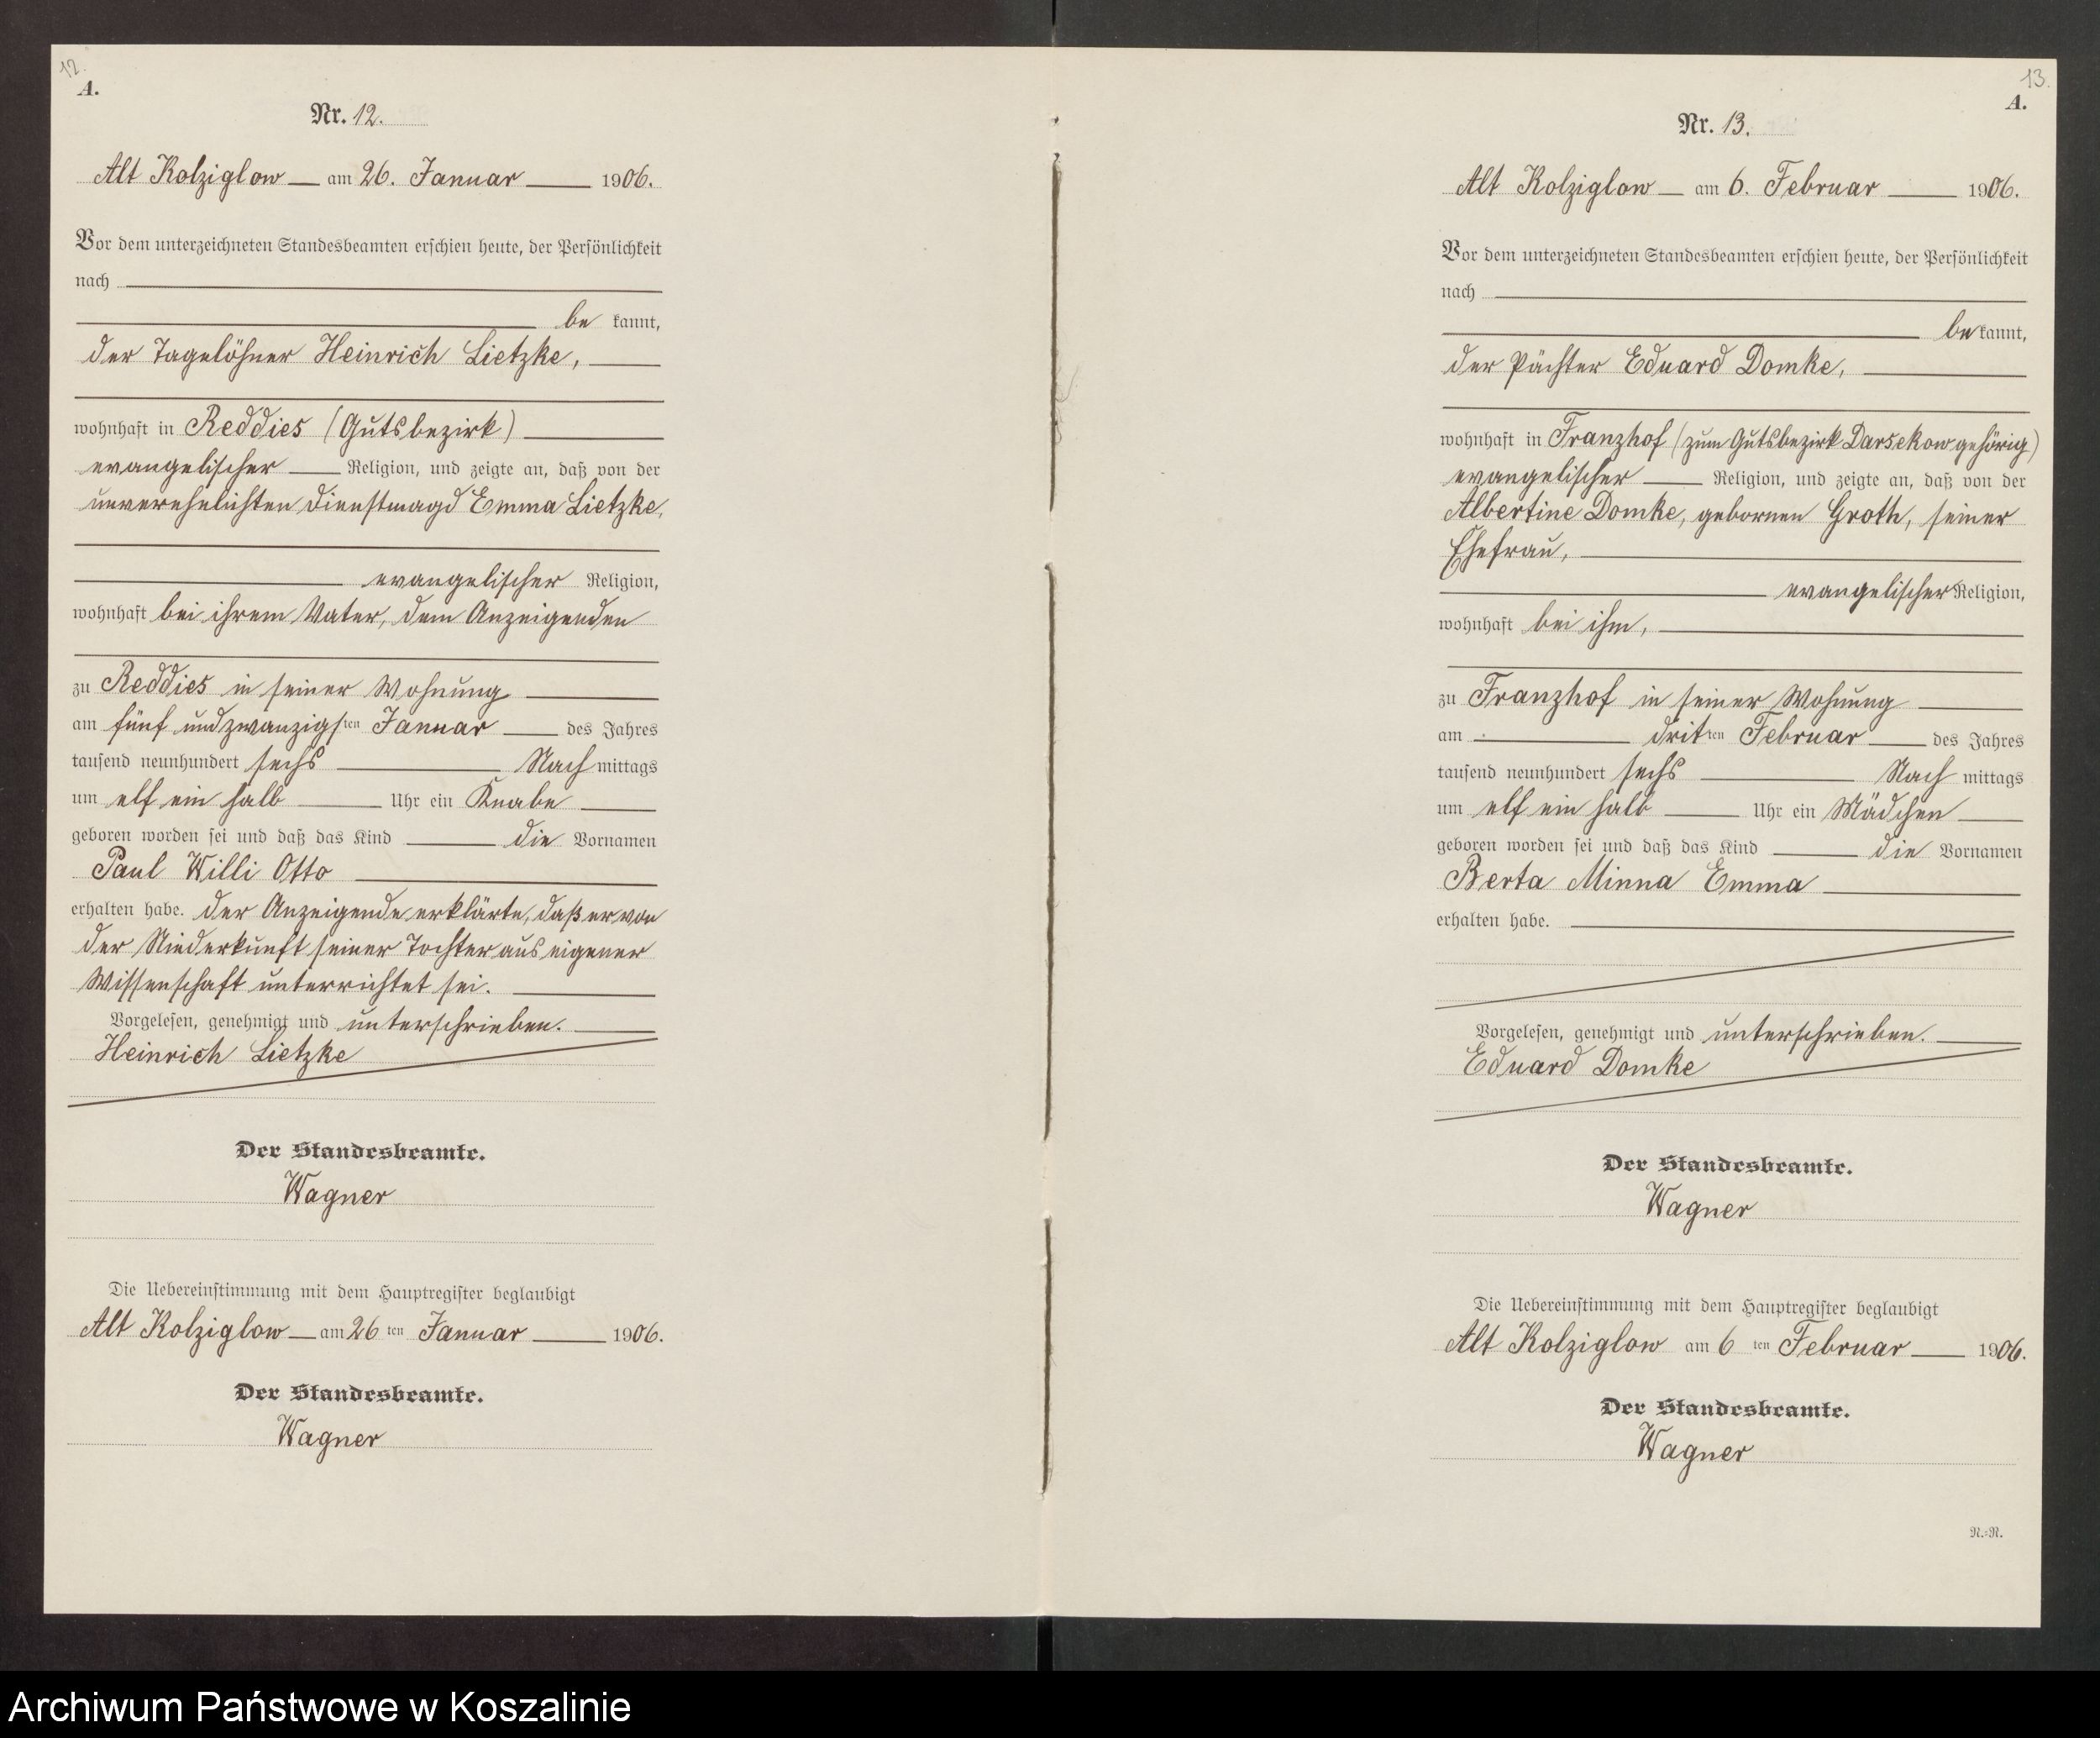 12.
A.
Nr. 12.
Alt Kolziglow am 26. Januar 1906.
Vor dem unterzeichneten Standesbeamten erschien heute, der Persönlichkeit
nach
be kannt,
der Tagelöhner Heinrich Lietzke,
wohnhaft in Reddies (Gutsbezirk)
evangelischer Religion, und zeigte an, daß von der
unverehelichten Dienstmagd Emma Lietzke,
evangelischer Religion,
wohnhaft bei ihrem Vater, dem Anzeigenden
zu Reddies in seiner Wohnung
am fünf und zwanzigsten Januar des Jahres
tausend neunhundert sechs Nach mittags
um elf ein halb Uhr ein Knabe
geboren worden sei und daß das Kind die Vornamen
Paul Willi Otto
erhalten habe. Der Anzeigende erklärte, daß er von
der Niederkunft seiner Tochter aus eigener
Wissenschaft unterrichtet sei.
Vorgelesen, genehmigt und unterschrieben.
Heinrich Lietzke
Der Standesbeamte.
Wagner
Die Uebereinstimmung mit dem Hauptregister beglaubigt
Alt Kolziglow am 26 ten Januar 1906.
Der Standesbeamte.
Wagner
13.
A.
Nr. 13.
Alt Kolziglow am 6. Februar 1906.
Vor dem unterzeichneten Standesbeamten erschien heute, der Persönlichkeit
nach
be kannt,
der Pächter Eduard Domke,
wohnhaft in Franzhof (zum Gutsbezirk Darsekow gehörig)
evangelischer Religion, und zeigte an, daß von der
Albertine Domke, gebornen Groth, seiner
Ehefrau,
evangelischer Religion,
wohnhaft bei ihm,
zu Franzhof in seiner Wohnung
am dritten Februar des Jahres
tausend neunhundert sechs Nach mittags
um elf ein halb Uhr ein Mädchen
geboren worden sei und daß das Kind die Vornamen
Berta Minna Emma
erhalten habe.
Vorgelesen, genehmigt und unterschrieben.
Eduard Domke
Der Standesbeamte.
Wagner
Die Uebereinstimmung mit dem Hauptregister beglaubigt
Alt Kolziglow am 6 ten Februar 1906.
Der Standesbeamte.
Wagner
N.=N.
Archiwum Państwowe w Koszalinie